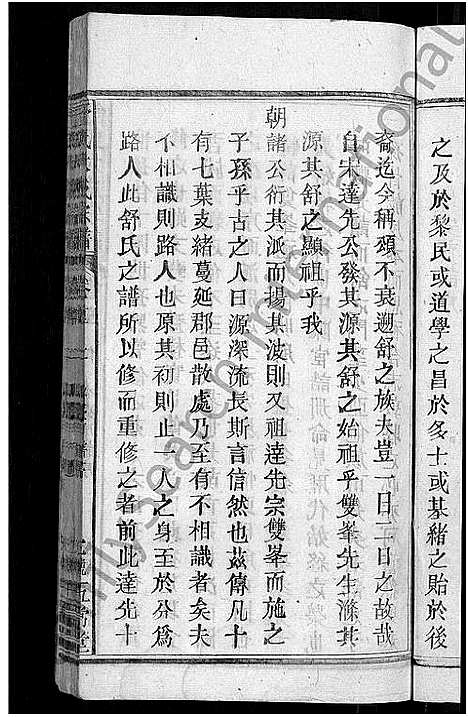 之及於黎民或道學之昌於多士或基緒之貽於後
裔迄今稱頌不衰遡舒之族夫豈一日二日之故哉
自宋達先公發其源其舒之始祖乎雙峯先生滌其
源其舒之顯祖乎我
朝諸公衍其派而揚其波則又祖達先宗雙峯而施之
子孫乎古之人曰源深流長斯言信然也茲傳凡十
有七葉支緒蔓延郡邑散處乃至有不相識者矣夫
不相識則路人也原其初則止一人之身至於分爲
路人此舒氏之譜所以修而重修之者前此達先十